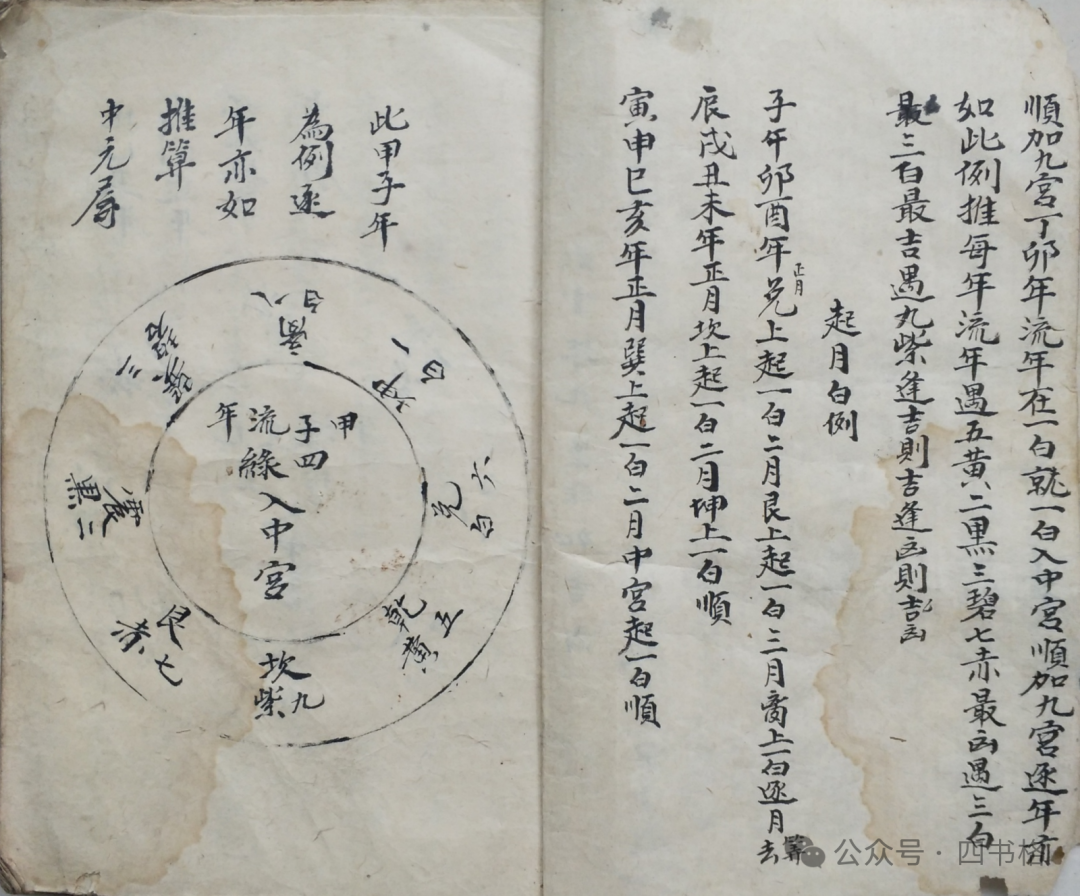 順加九宮丁卯年流年在一白就一白入中宮順加九宮逐年前
如此例推每年流年遇五黃二黑三碧七赤最凶遇三白
最三白最吉遇九紫逢吉則吉逢凶則凶
起月白例
子午卯酉年兑上起一白二月艮上起一白三月离上一白逐月去算
正月
辰戌丑未年正月坎上起一白二月坤上一白順
寅申巳亥年正月巽上起一白二月中宮起一白順
此甲子年
為例逐
年亦如
推算
中元局
甲子四
流綠
年
入中宮
离八白
坤一白
兑六白
乾五黃
坎九紫
艮七赤
震二黑
巽三碧
公众号·四书格